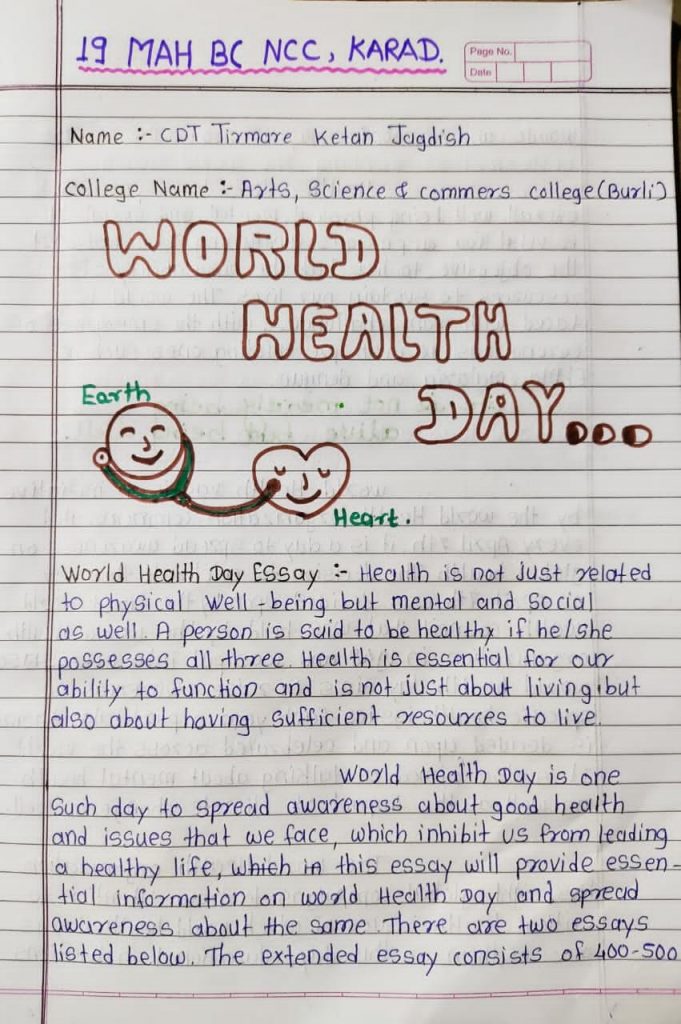 19 MAH BC NCC, KARAD.
Page No.
Date
Name :- CDT Tirmare Ketan Jagdish
College Name :- Arts, Science & commers college (Burli)
WORLD
HEALTH
DAY...
Earth
Heart.
World Health Day Essay :- Health is not just related
to physical well-being but mental and social
as well. A person is said to be healthy if he/she
possesses all three. Health is essential for our
ability to function and is not just about living, but
also about having sufficient resources to live.
World Health Day is one
such day to spread awareness about good health
and issues that we face, which inhibit us from leading
a healthy life, which in this essay will provide essen-
tial information on world Health Day and spread
awareness about the same. There are two essays
listed below. The extended essay consists of 400-500